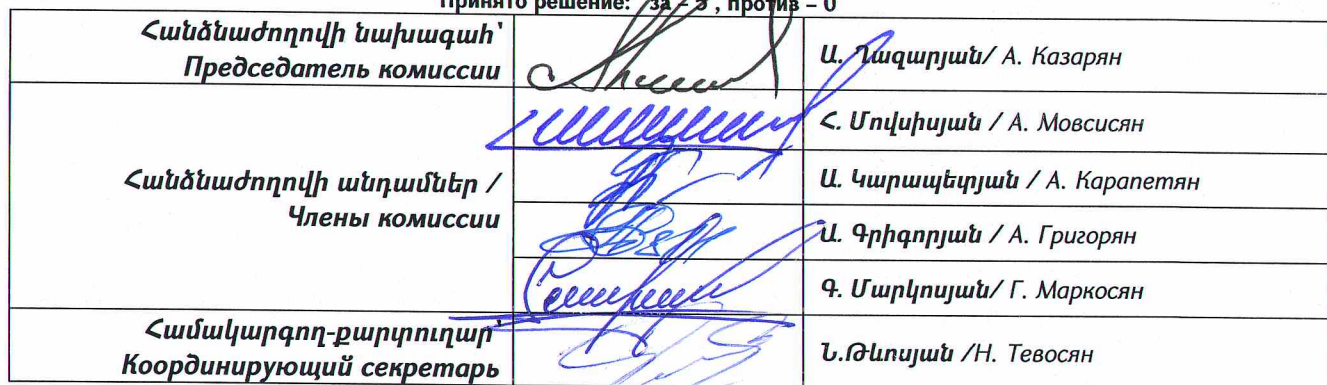 Принято решение: за – 5 , против – 0
Հանձնաժողովի նախագահ՝
Председатель комиссии
Ա. Ղազարյան/ А. Казарян
Հ. Մովսիսյան / А. Мовсисян
Հանձնաժողովի անդամներ /
Члены комиссии
Ա. Կարապետյան / А. Карапетян
Ա. Գրիգորյան / А. Григорян
Գ. Մարկոսյան/ Г. Маркосян
Համակարգող-քարտուղար՝
Координирующий секретарь
Ն.Թևոսյան /Н. Тевосян